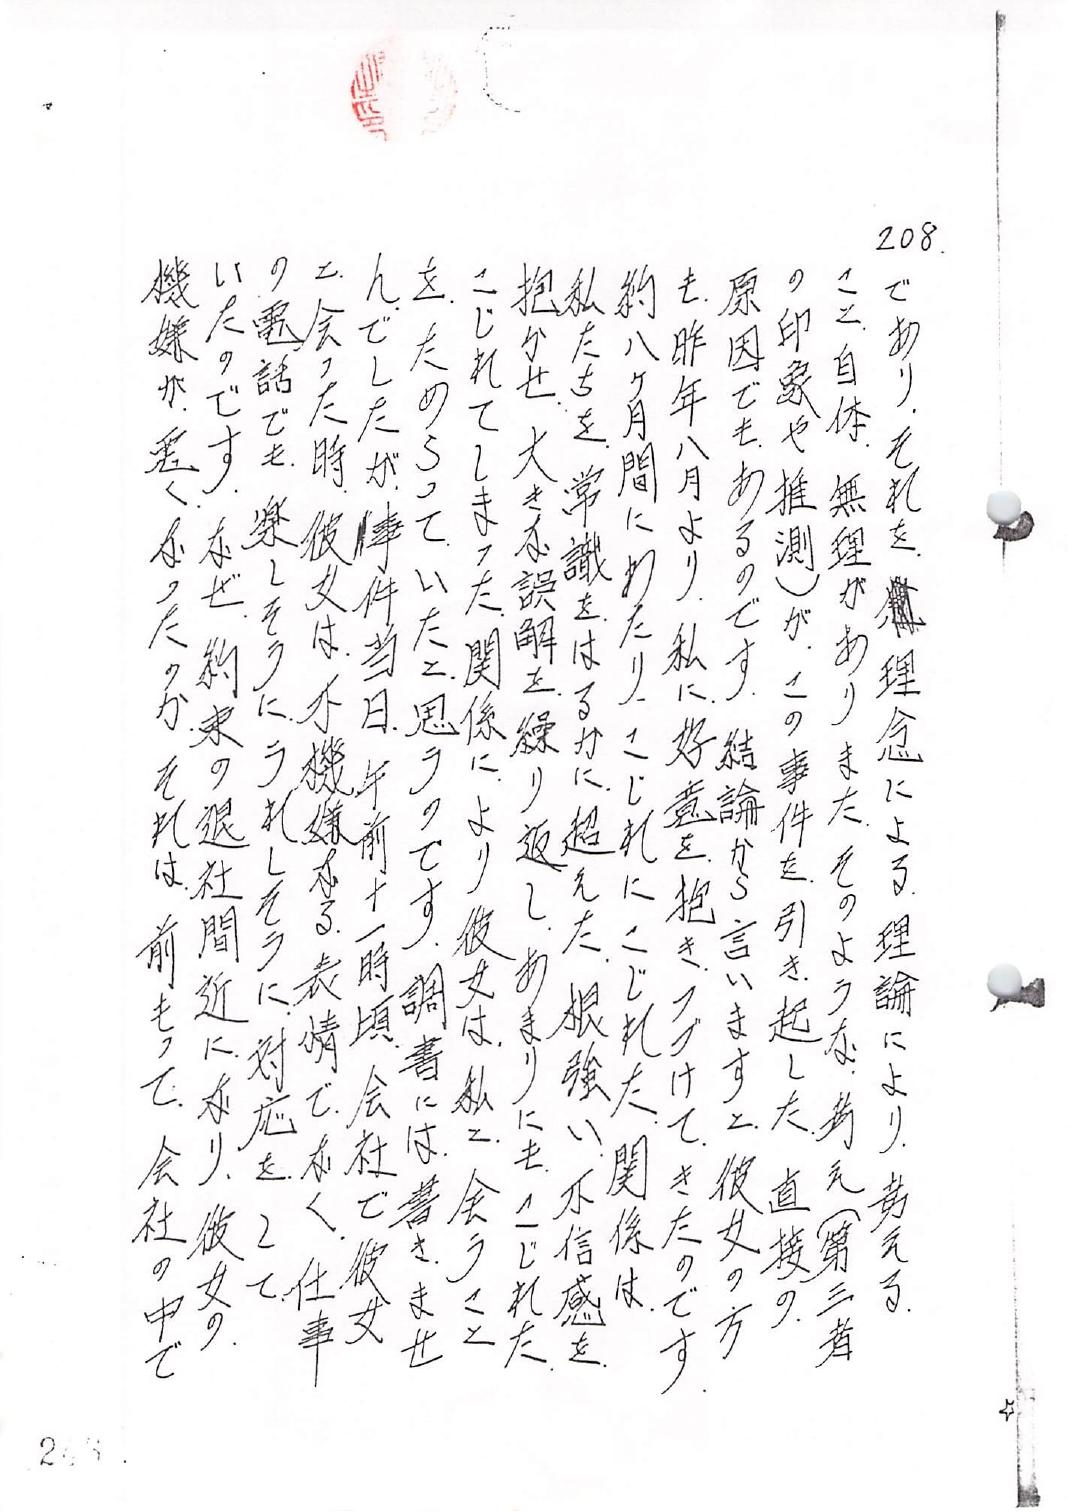 208.
であり、それを、理念による、理論により、考える、
こと、自体、無理があり、また、そのような、考え（第三者
の印象や推測）が、この事件を、引き、起した、直接の、
原因でも、あるのです、結論から言いますと、彼女の方
も、昨年八月より、私に、好意を、抱き、つづけて、きたのです、
約八ヶ月間にわたり、こじれに、こじれた、関係は、
私たちを、常識をはるかに、超えた、根強い、不信感を、
抱かせ、大きな誤解を、繰り返し、あまりにも、こじれた、
こじれてしまった、関係に、より、彼女は、私と、会うこと
を、ためらって、いたと、思うのです、調書には、書きませ
んでしたが、事件当日、午前十一時頃、会社で、彼女
と、会った時、彼女は、不機嫌なる、表情で、なく、仕事
の電話でも、楽しそうに、うれしそうに、対応を、して、
いたのです、なぜ、約束の退社間近に、なり、彼女の、
機嫌が、悪く、なったのか、それは、前もって、会社の中で